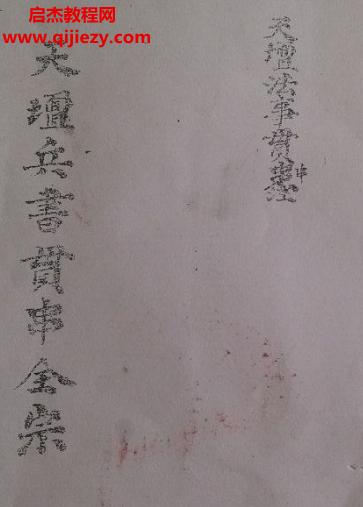 启杰教程网
www.qijiezy.com
天壇法事貫串経
大壇兵書貫串全宗